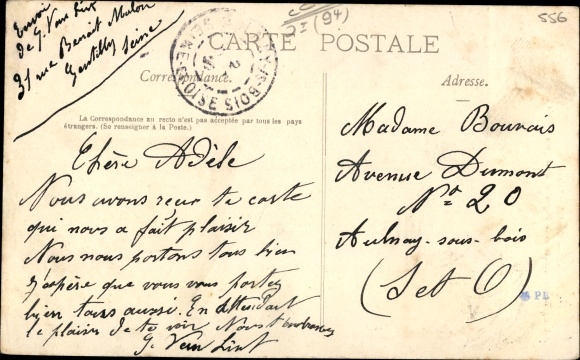 Envoi
de G. Van Lint
31 rue Benoit Malon
Gentilly Seine
(94)
556
CARTE POSTALE
Correspondance.
Adresse.
La Correspondance au recto n'est pas acceptée par tous les pays
étrangers. (Se renseigner à la Poste.)
SEINE-ET-OISE
Chère Adèle
Nous avons reçue ta carte
qui nous a fait plaisir
Nous nous portons tous bien
j'espère que vous vous portez
bien tous aussi. En attendant
le plaisir de te voir Nous t'embrassons
G. Van Lint
Madame Bouvais
Avenue Dumont
N° 20
Aulnay-sous-bois
(S et O)